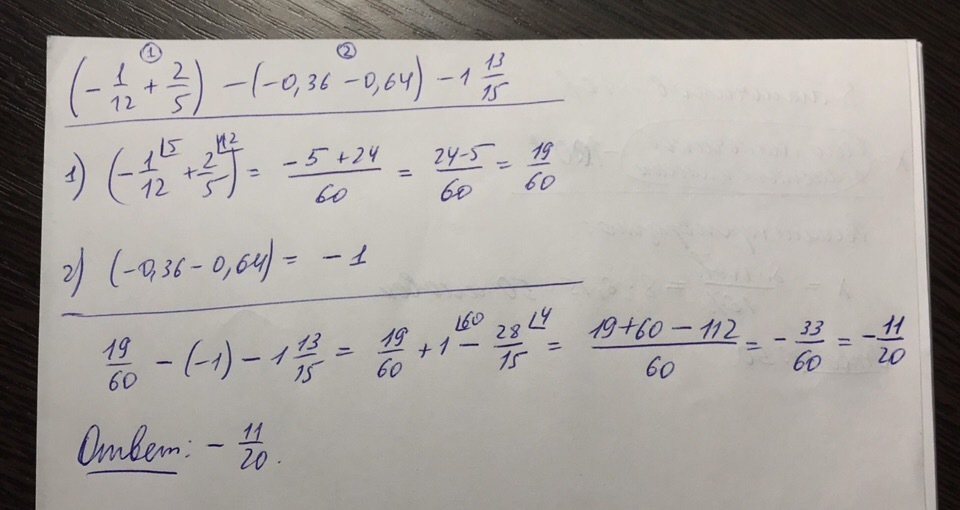 ① ②
(-1/12 + 2/5) - (-0,36 - 0,64) - 1 13/15
1) (-1⌊5/12 + 2⌊12/5) = -5+24/60 = 24-5/60 = 19/60
2) (-0,36 - 0,64) = -1
19/60 - (-1) - 1 13/15 = 19/60 + 1⌊60 - 28⌊4/15 = 19+60-112/60 = -33/60 = -11/20
Ответ: - 11/20.